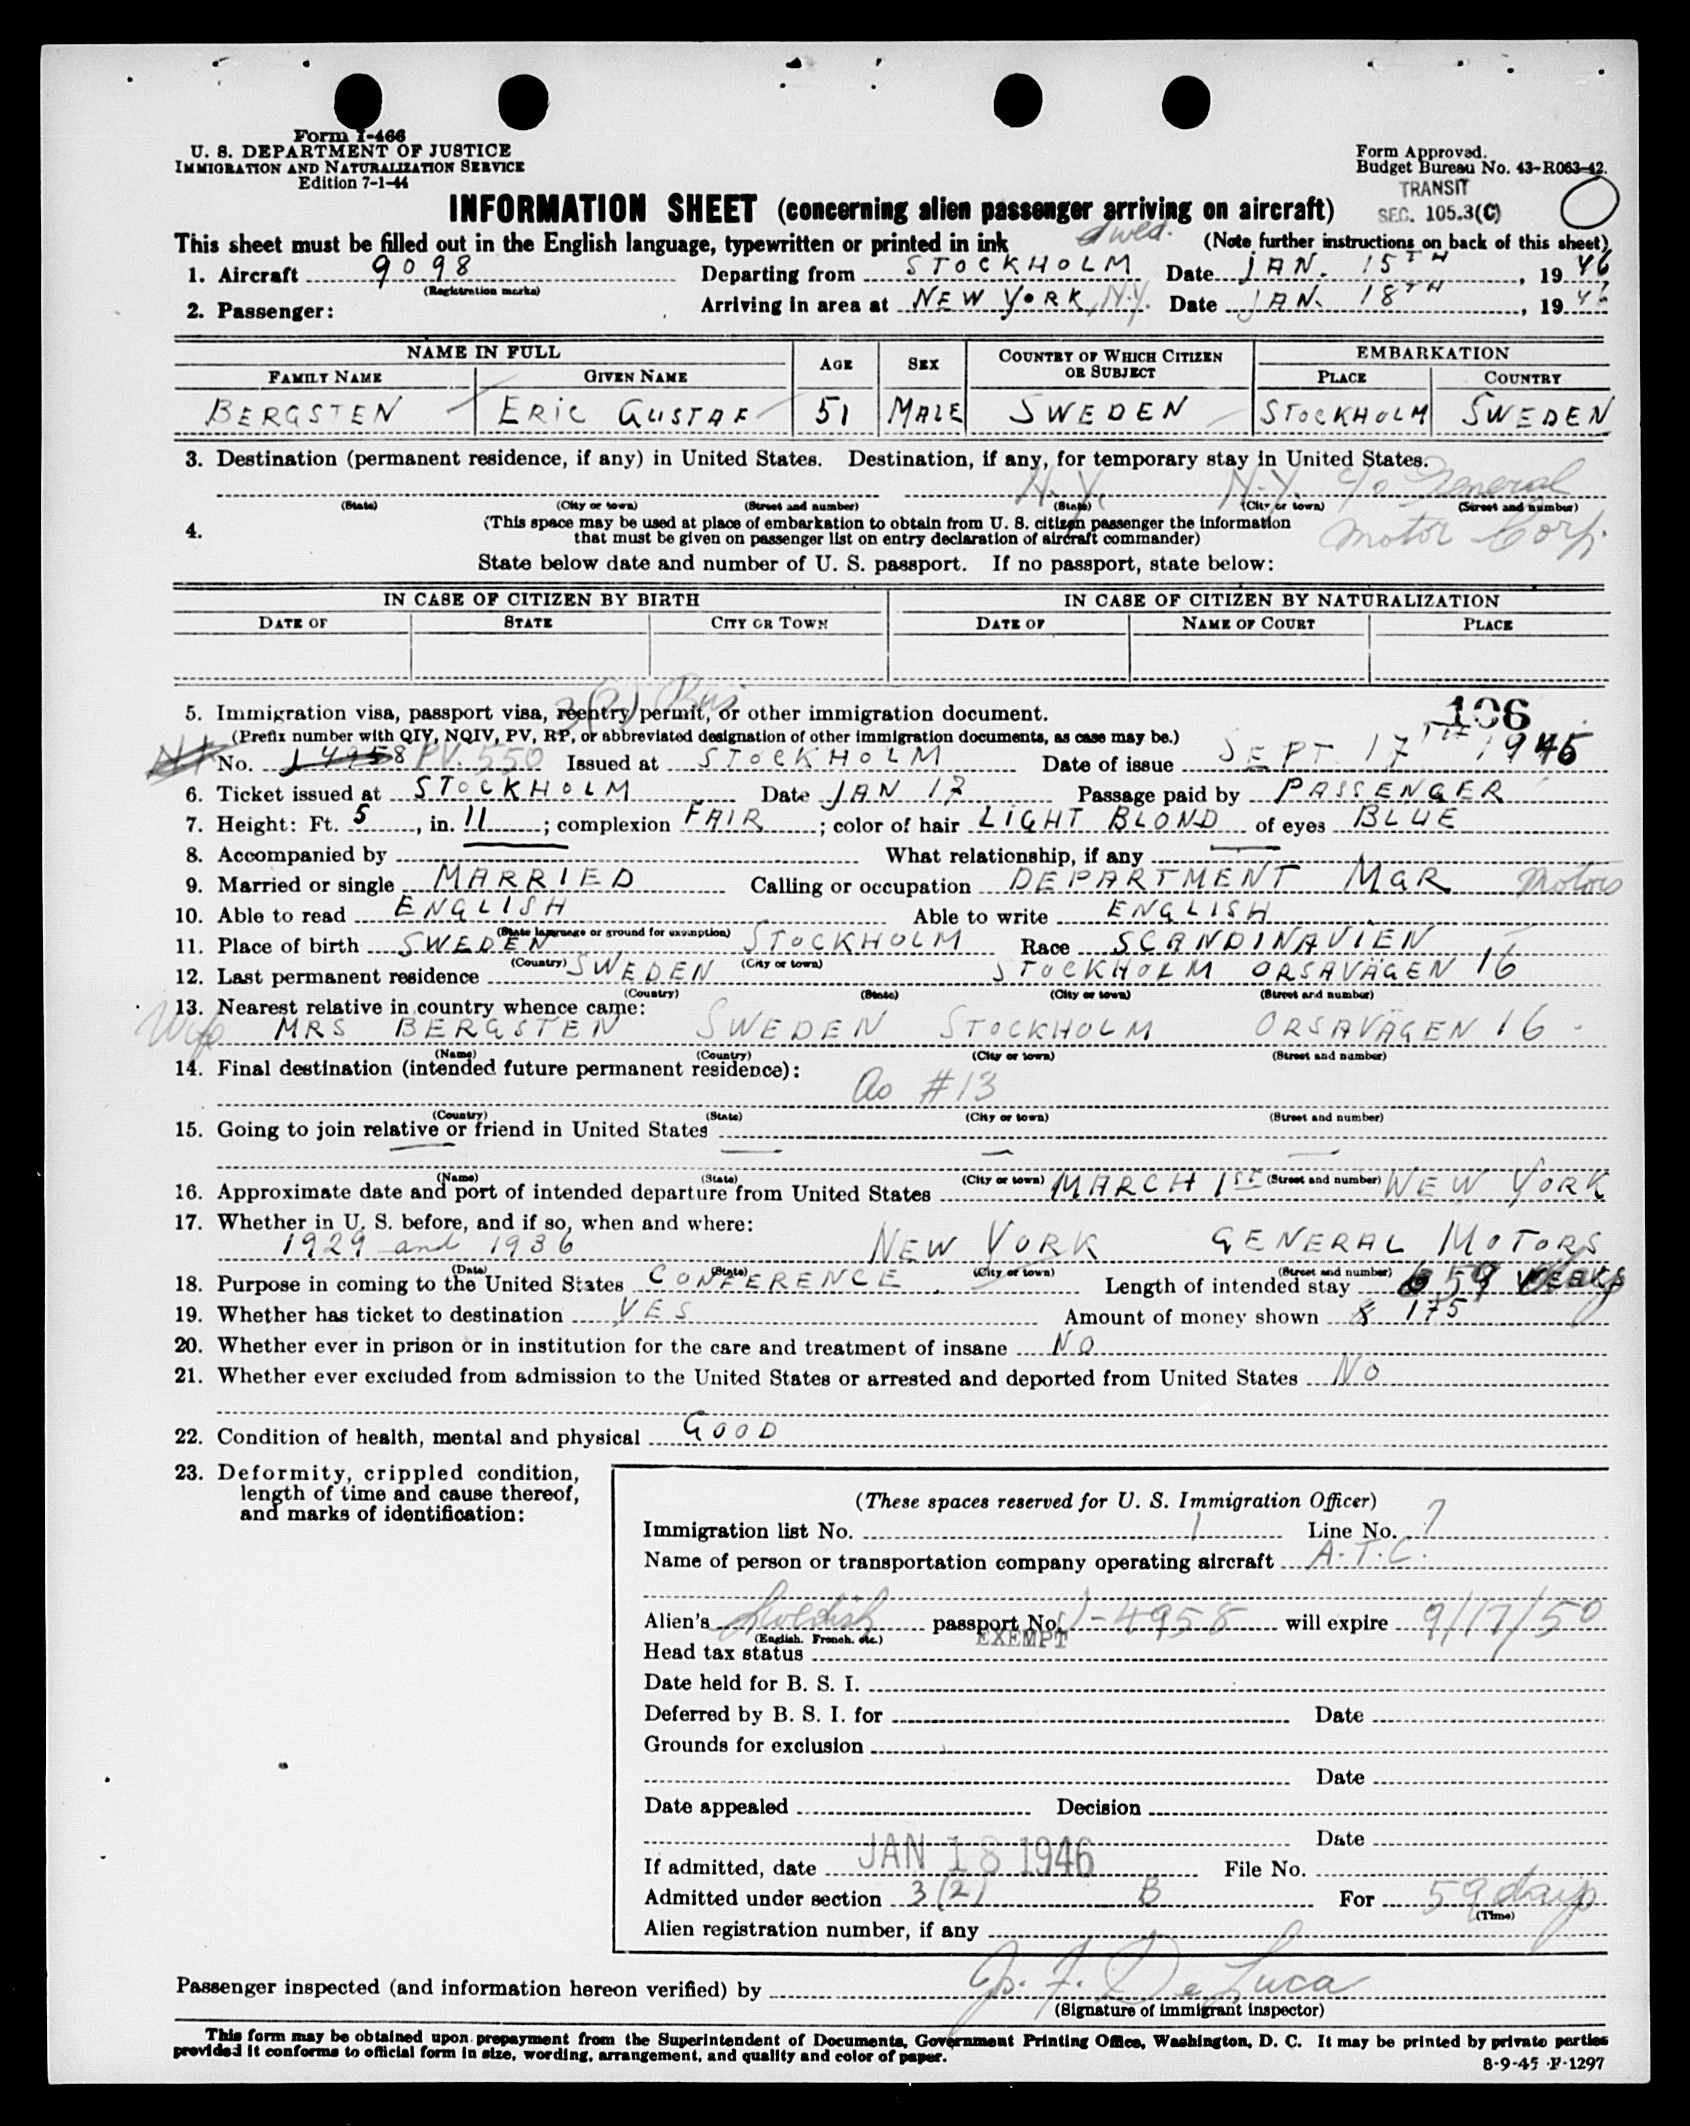 Form I-466
U. S. DEPARTMENT OF JUSTICE
IMMIGRATION AND NATURALIZATION SERVICE
Edition 7-1-44
Form Approved.
Budget Bureau No. 43-R063-42.
TRANSIT
SEC. 105.3(C)
INFORMATION SHEET (concerning alien passenger arriving on aircraft)
This sheet must be filled out in the English language, typewritten or printed in ink
Swed.
(Note further instructions on back of this sheet)
1. Aircraft 9098 Departing from STOCKHOLM Date JAN. 15TH, 1946
(Registration marks)
2. Passenger: Arriving in area at NEW YORK, N.Y. Date JAN. 18TH, 1946
NAME IN FULL AGE SEX COUNTRY OF WHICH CITIZEN OR SUBJECT EMBARKATION
FAMILY NAME GIVEN NAME PLACE COUNTRY
BERGSTEN ERIC GUSTAF 51 MALE SWEDEN STOCKHOLM SWEDEN
3. Destination (permanent residence, if any) in United States. Destination, if any, for temporary stay in United States.
N.Y. N.Y. c/o General
(State) (City or town) (Street and number) (State) (City or town) (Street and number)
Motor Corp.
4. (This space may be used at place of embarkation to obtain from U. S. citizen passenger the information
that must be given on passenger list on entry declaration of aircraft commander)
State below date and number of U. S. passport. If no passport, state below:
IN CASE OF CITIZEN BY BIRTH IN CASE OF CITIZEN BY NATURALIZATION
DATE OF STATE CITY OR TOWN DATE OF NAME OF COURT PLACE
3(2) Bus
5. Immigration visa, passport visa, reentry permit, or other immigration document. 106
(Prefix number with QIV, NQIV, PV, RP, or abbreviated designation of other immigration documents, as case may be.)
No. 14958 PV. 550 Issued at STOCKHOLM Date of issue SEPT. 17TH 1945
6. Ticket issued at STOCKHOLM Date JAN 12 Passage paid by PASSENGER
7. Height: Ft. 5, in. 11; complexion FAIR; color of hair LIGHT BLOND of eyes BLUE
8. Accompanied by What relationship, if any
9. Married or single MARRIED Calling or occupation DEPARTMENT MGR Motors
10. Able to read ENGLISH Able to write ENGLISH
(State language or ground for exemption)
11. Place of birth SWEDEN STOCKHOLM Race SCANDINAVIEN
(Country) (City or town)
12. Last permanent residence SWEDEN STOCKHOLM ORSAVÄGEN 16
(Country) (State) (City or town) (Street and number)
13. Nearest relative in country whence came:
Wife MRS BERGSTEN SWEDEN STOCKHOLM ORSAVÄGEN 16
(Name) (Country) (City or town) (Street and number)
14. Final destination (intended future permanent residence):
As #13
(Country) (State) (City or town) (Street and number)
15. Going to join relative or friend in United States
(Name) (State) (City or town) (Street and number)
16. Approximate date and port of intended departure from United States MARCH 1ST NEW YORK
17. Whether in U. S. before, and if so, when and where:
1929 and 1936 NEW YORK GENERAL MOTORS
(Date) (State) (City or town) (Street and number)
18. Purpose in coming to the United States CONFERENCE Length of intended stay 59
19. Whether has ticket to destination YES Amount of money shown $ 175
20. Whether ever in prison or in institution for the care and treatment of insane NO
21. Whether ever excluded from admission to the United States or arrested and deported from United States NO
22. Condition of health, mental and physical GOOD
23. Deformity, crippled condition,
length of time and cause thereof,
and marks of identification:
(These spaces reserved for U. S. Immigration Officer)
Immigration list No. 1 Line No. 7
Name of person or transportation company operating aircraft A.T.C.
Alien's Swedish passport No. J-4958 will expire 9/17/50
(English. French. etc.)
Head tax status EXEMPT
Date held for B. S. I.
Deferred by B. S. I. for Date
Grounds for exclusion
Date
Date appealed Decision
Date
If admitted, date JAN 18 1946 File No.
Admitted under section 3(2) B For 59 days
(Time)
Alien registration number, if any
Passenger inspected (and information hereon verified) by J. F. De Luca
(Signature of immigrant inspector)
This form may be obtained upon prepayment from the Superintendent of Documents, Government Printing Office, Washington, D. C. It may be printed by private parties
provided it conforms to official form in size, wording, arrangement, and quality and color of paper.
8-9-45 F-1297